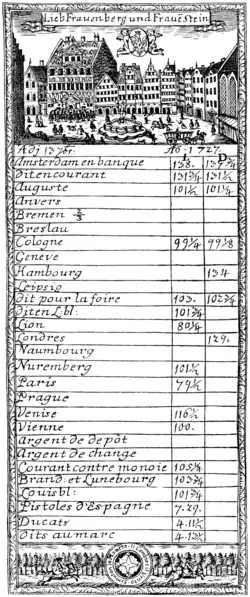 Lieb Frauenberg und Frauē Stein
Adj 13 7br: Ao: 1727.
L. D.
Amsterdam en banque 138.
dit en courant 131¾ 131½
Auguste 101½ 101¼
Anvers
Bremen ⅔
Breslau
Cologne 99¼ 99⅛
Geneve
Hambourg 134
Leipsig
dit pour la foire 103. 102¾
dit en L: bl: 101¾
Lion 80¼
Londres 129.
Naumbourg
Nuremberg 101½
Paris 79½
Prague
Venise 116½
Vienne 100.
Argent de depôt
Argent de change
Courant contre monoie 105¼
Brand: et Lunebourg 103¾
Louis bl: 101¾
Pistoles d'Espagne 7.29.
Ducats 4.11½
dits au marc 4.12½